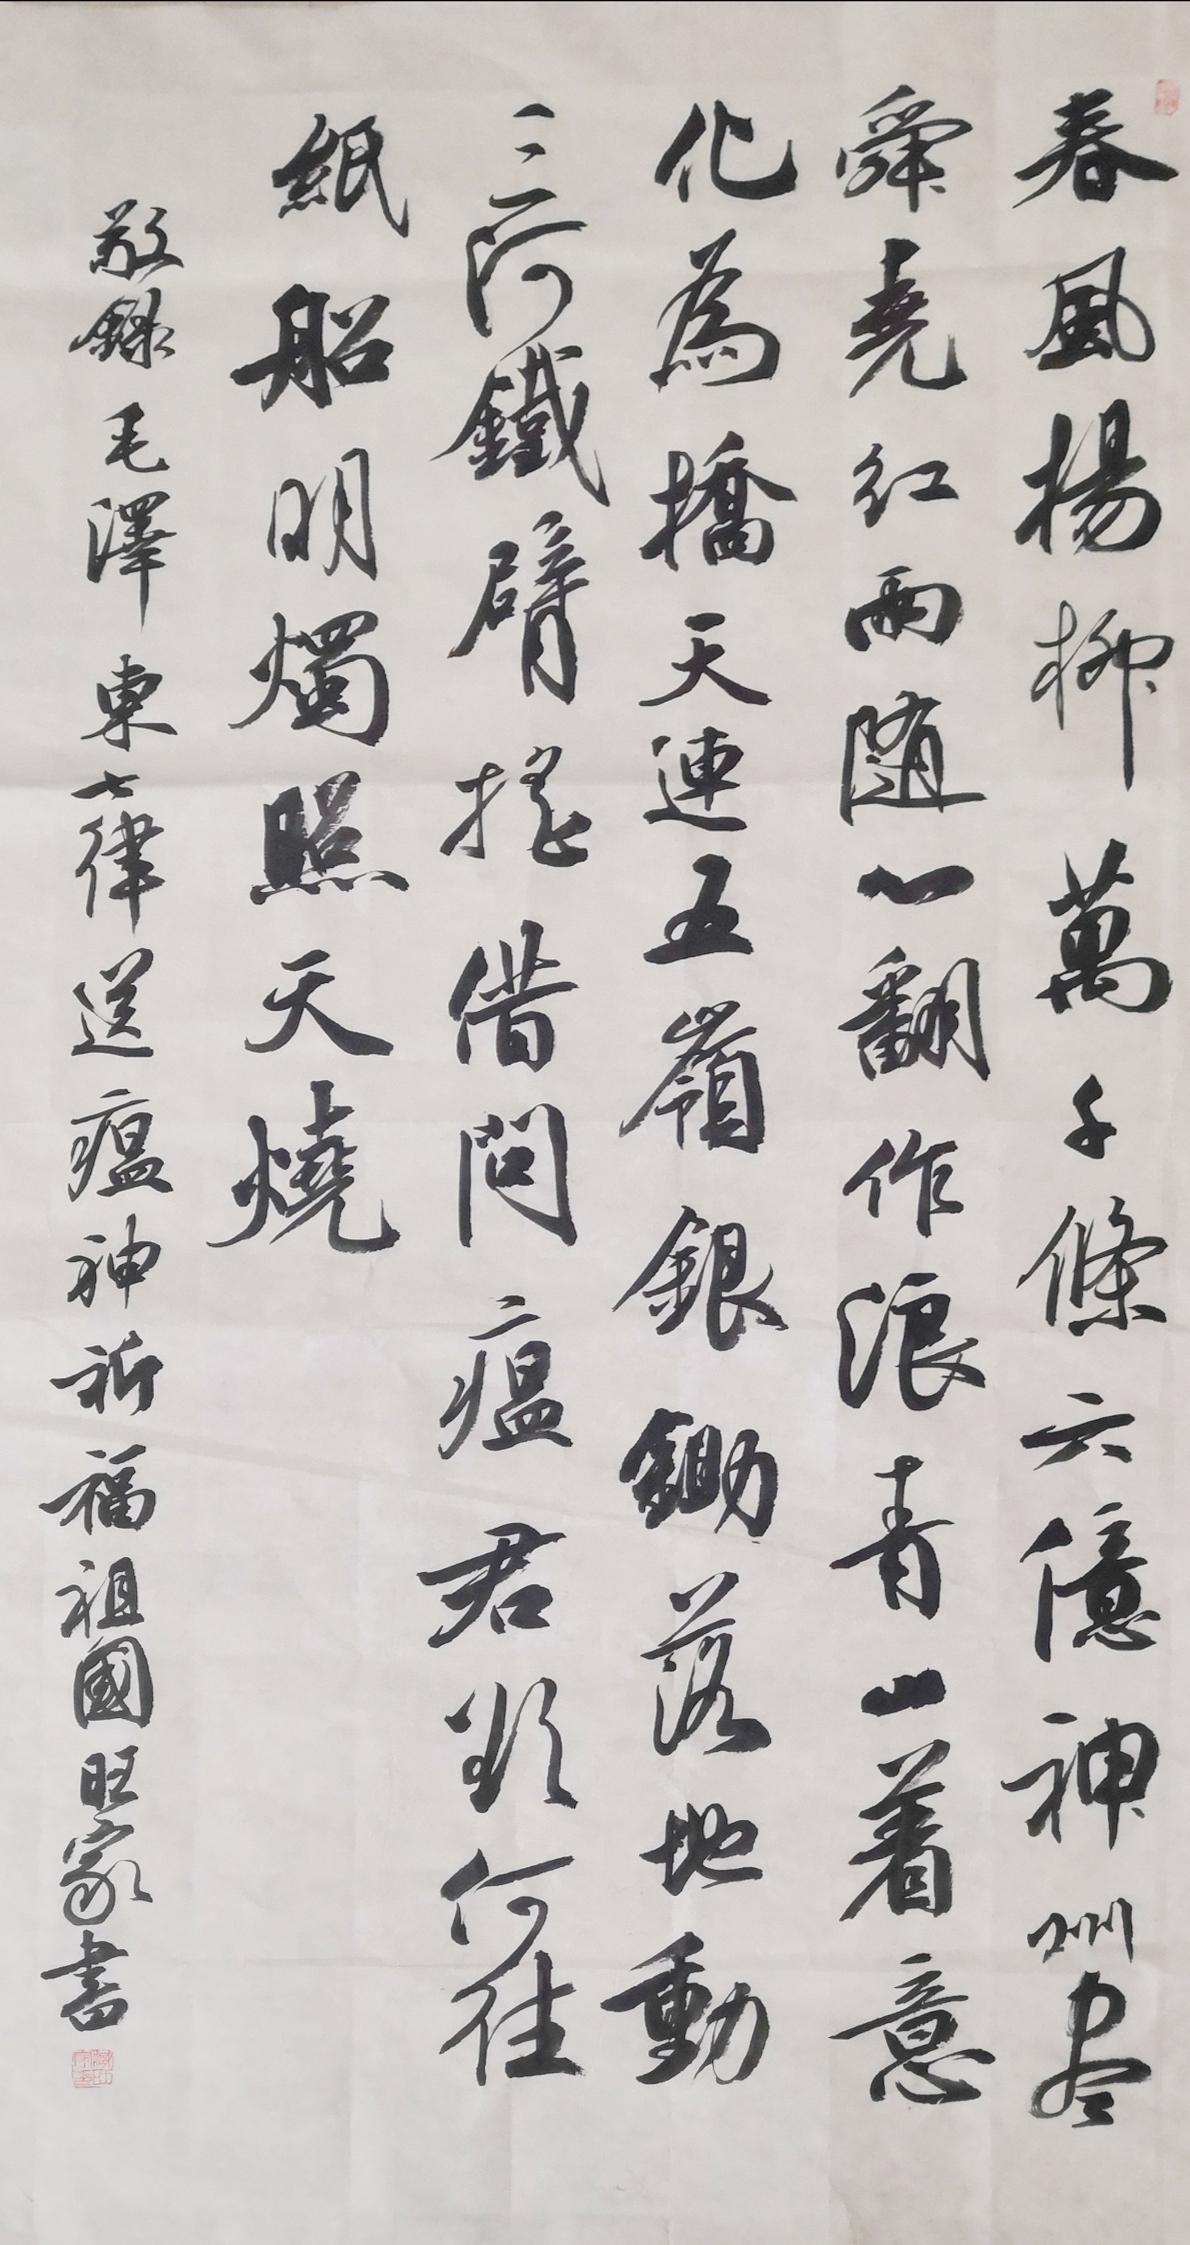 春風楊柳萬千條六億神州盡
舜堯紅雨随心翻作浪青山着意
化為橋天連五嶺銀鋤落地動
三河鐵臂搖借問瘟君欲何往
紙船明燭照天燒
敬錄毛澤東七律送瘟神祈福祖國旺家書